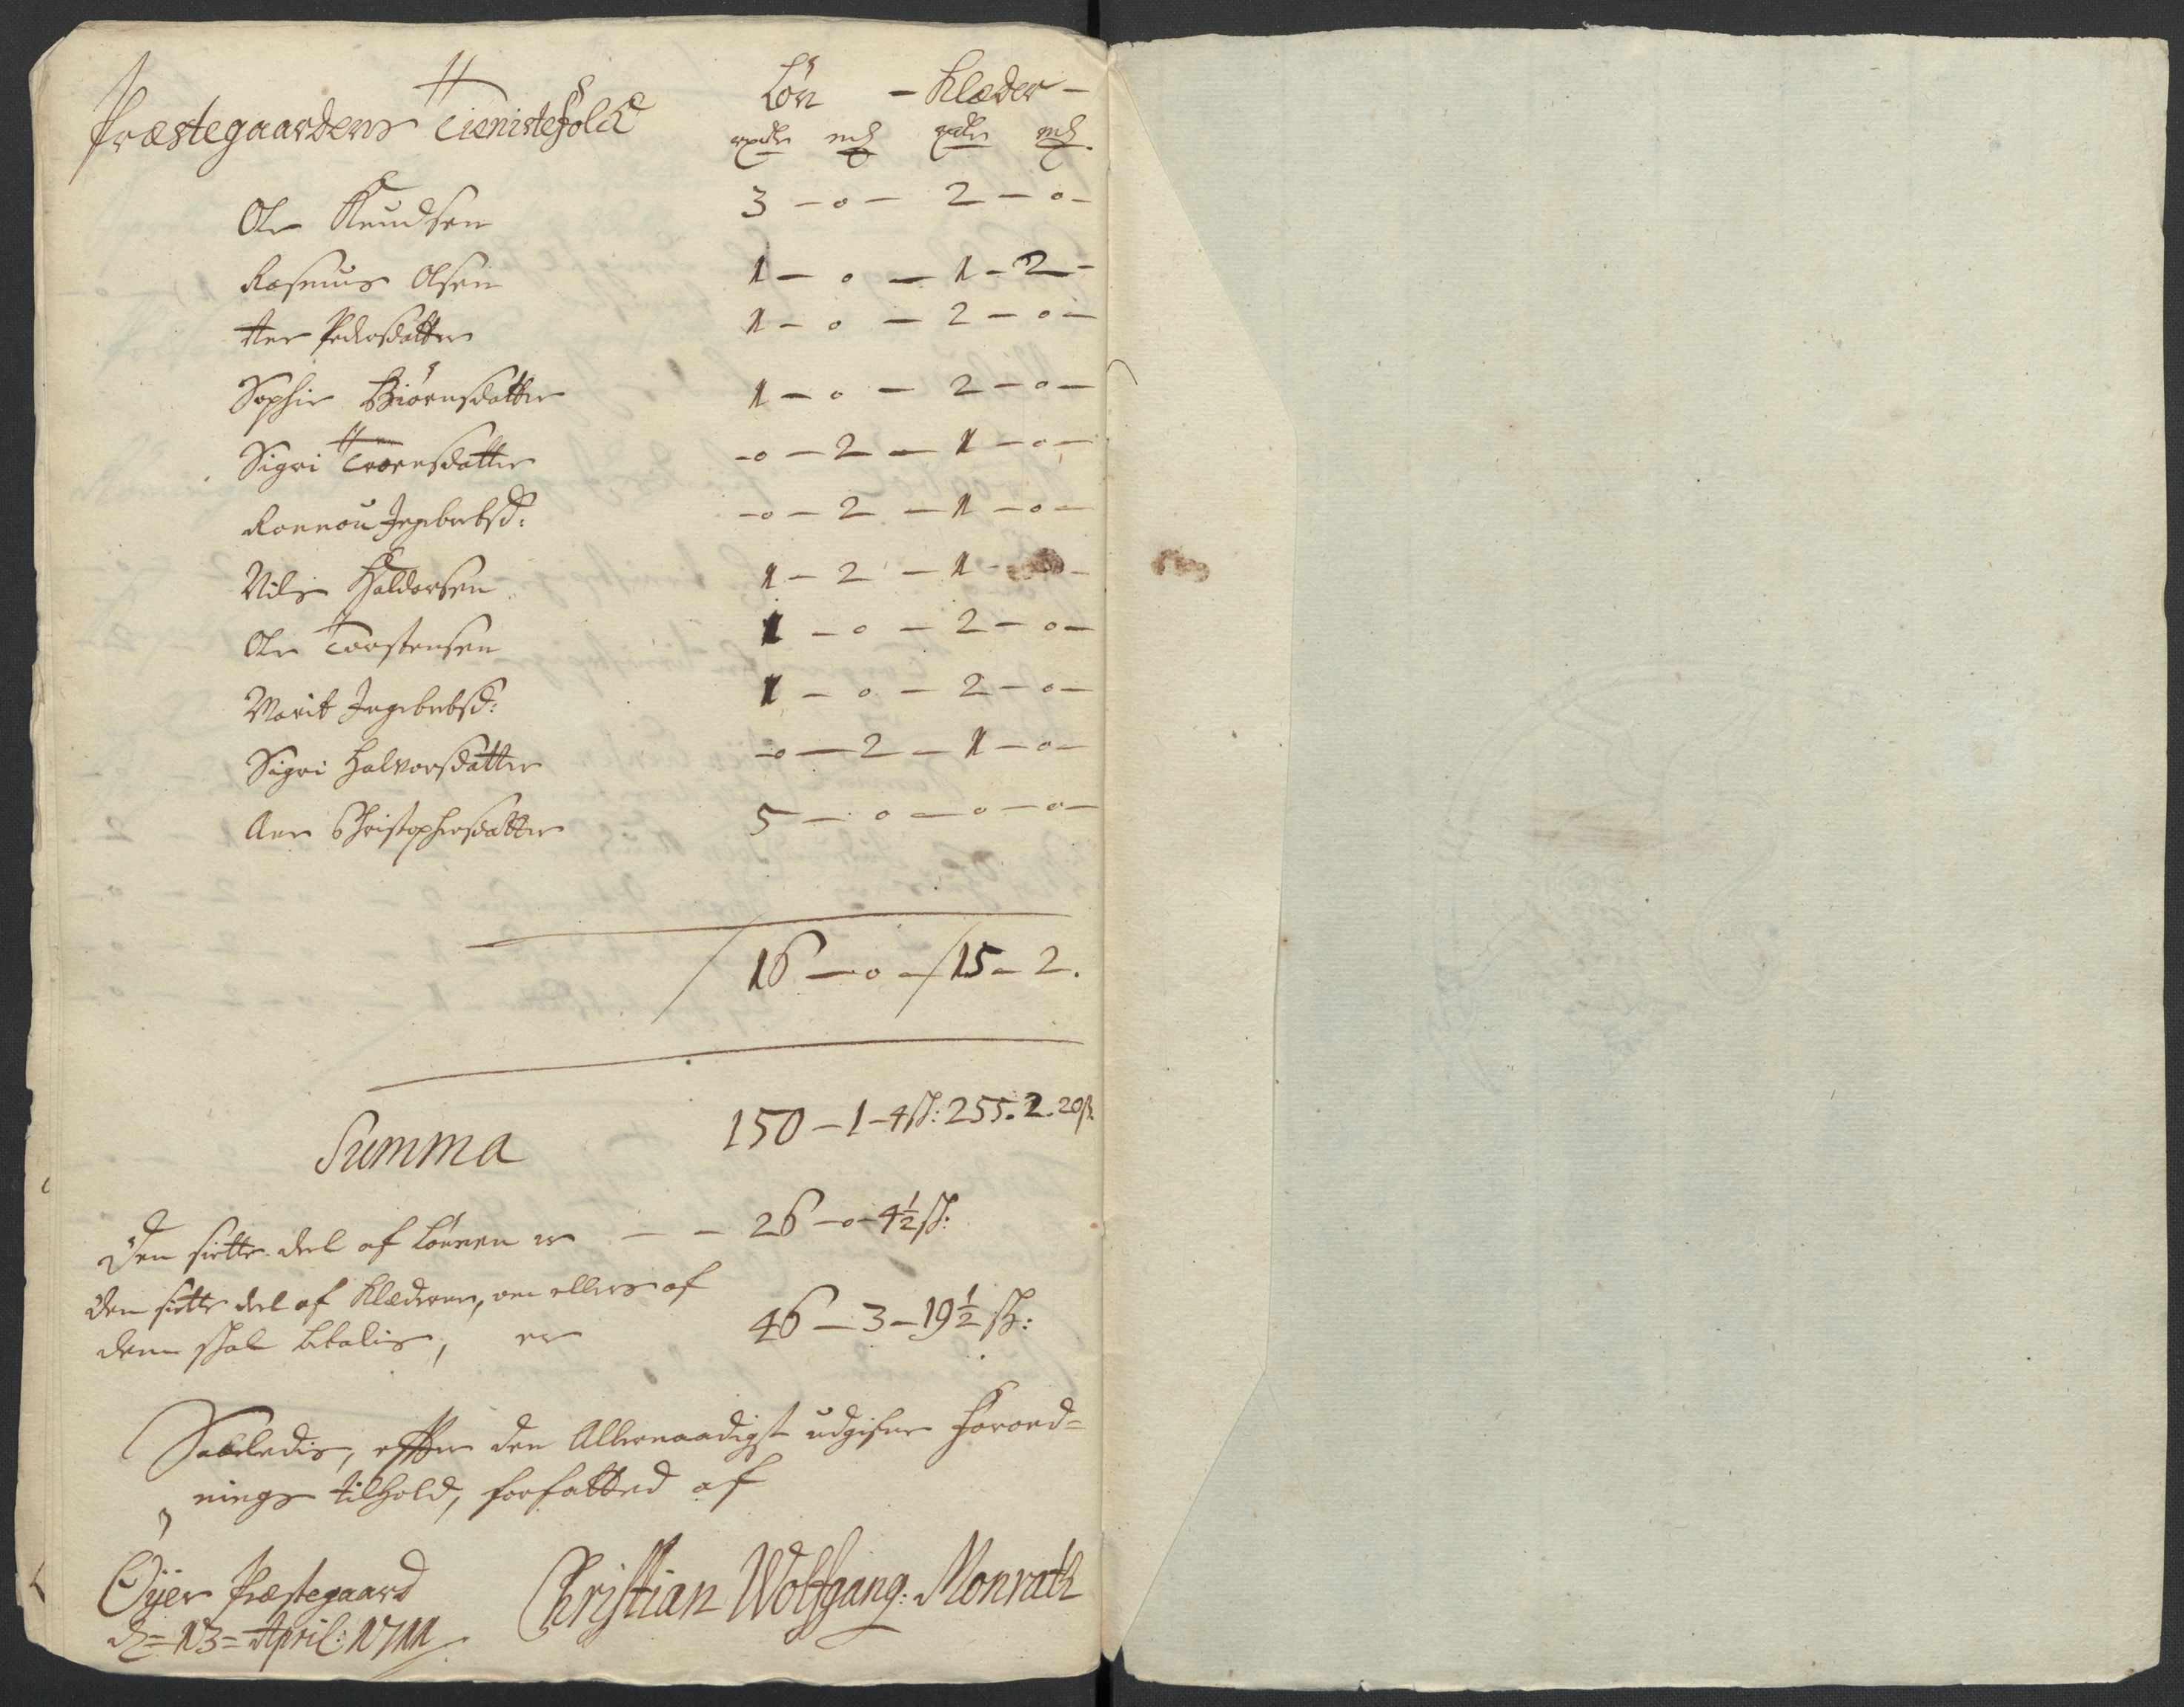 Løn - Klæder -
Præstegaardens Tienistefolck
rdr mk rdr mk.
Ole Knudsen 3 - 0 - 2 - 0 -
Rasmus Olsen 1 - 0 - 1 - 2 -
Ane Pedersdatter 1 - 0 - 2 - 0 -
Sophie Biörnsdatter 1 - 0 - 2 - 0 -
Sigri Troensdatter - 0 - 2 - 1 - 0 -
Ronnou Ingebretsd: - 0 - 2 - 1 - 0 -
Nils Haldorsen 1 - 2 - 1 -
Ole Torstensen 1 - 0 - 2 - 0 -
Marit Ingebretsd: 1 - 0 - 2 - 0 -
Sigri Halvorsdatter - 0 - 2 - 1 - 0 -
Ane Christophersdatter 5 - 0 - 0 - 0 -
/ 16 - 0 - / 15 - 2.
Summa 150 - 1 - 4 ß: 255. 2. 20 ß.
Den siette deel af Lönnen er - - 26 - 0 - 4 1/2 ß:
Den siette deel af Klæderne, om ellers af
dem skal betalis, er 46 - 3 - 19 1/2 ß:
Saaledis, efter den Allernaadigst udgifne Forord-
nings tilhold, forfatted af
Öyer Præstegaard
d= 13= April: 1711
Christian Wolfgang: Monrath